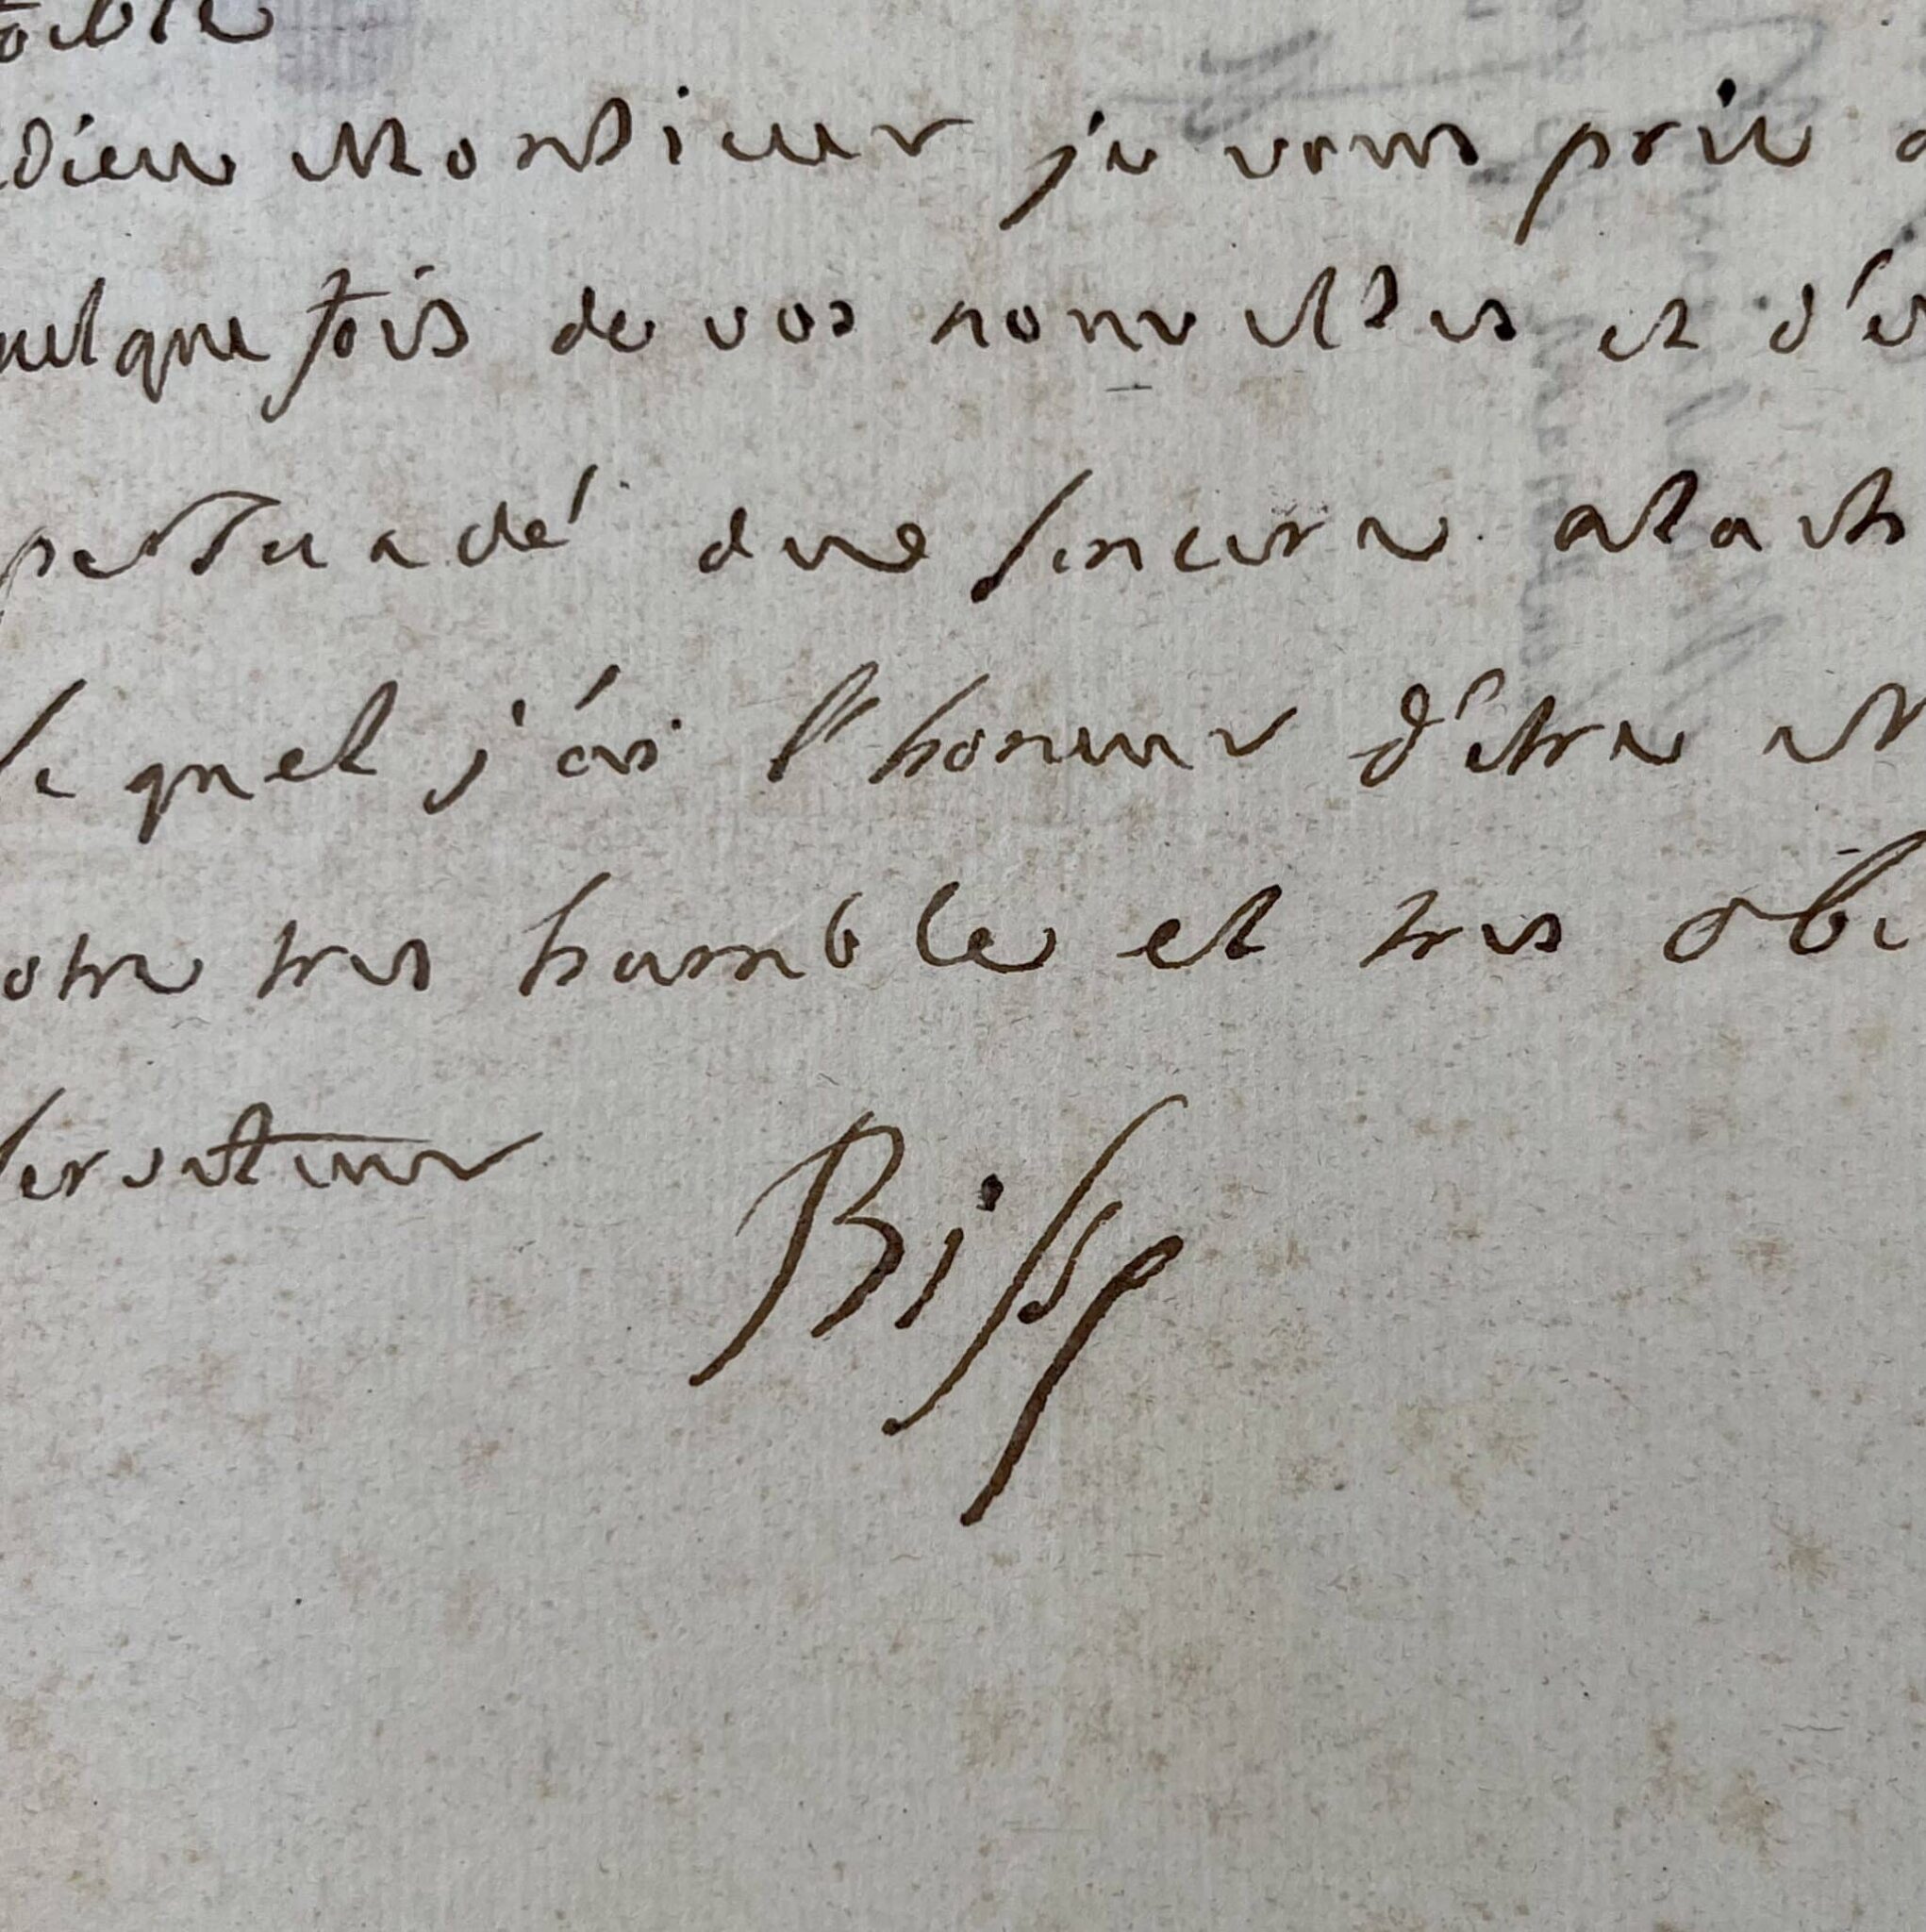 dieu Monsieur je vous prie d
uelque fois de vos nouvelles et d'e
persuadé dune sincere atach
lequel j'ai l'honneur d'etre et
otre tres humble et tres obe
serviteur Bissy